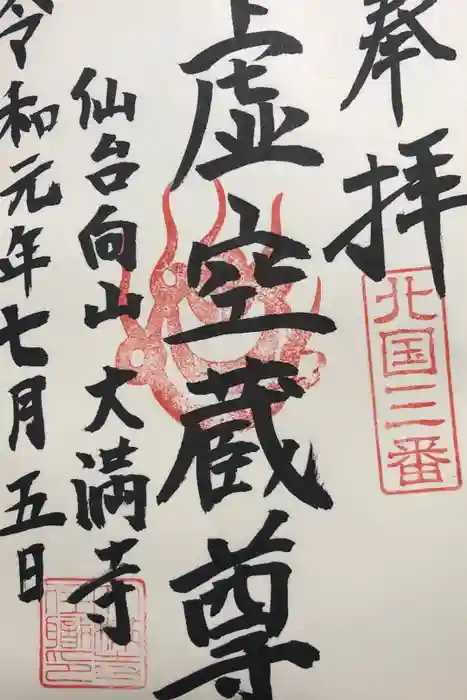 奉拝
北国三番
虚空蔵尊
仙台向山 大満寺
令和元年七月五日